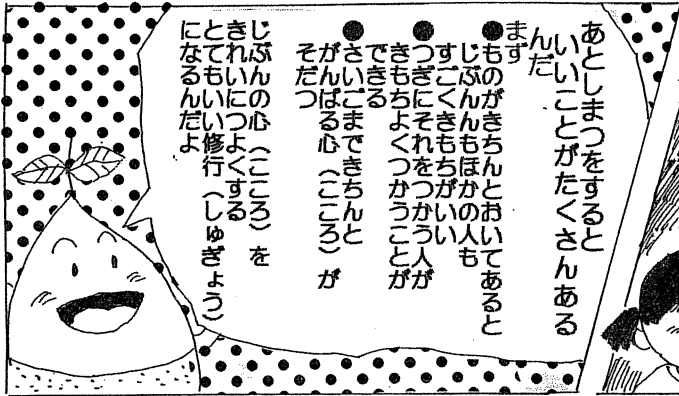 あとしまつをすると
いいことがたくさんある
んだ
まず
●ものがきちんとおいてあると
じぶんもほかの人も
すごくきもちがいい
●つぎにそれをつかう人が
きもちよくつかうことが
できる
●さいごまできちんと
がんばる心（こころ）が
そだつ
じぶんの心（こころ）を
きれいにつよくする
とてもいい修行（しゅぎょう）
になるんだよ